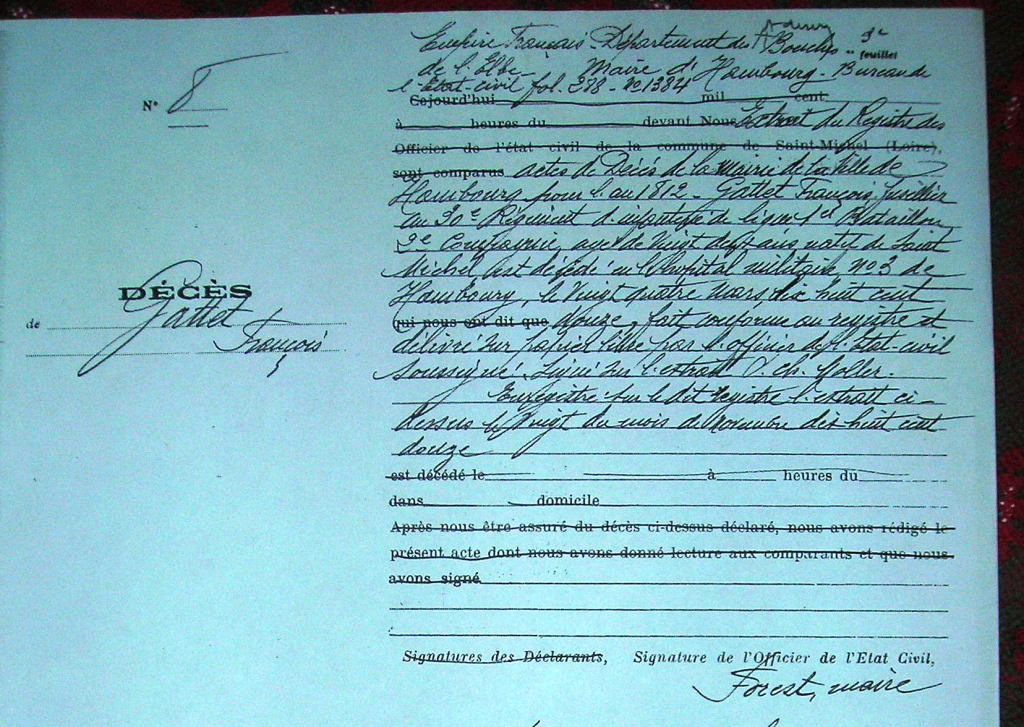 3e
feuillet
Empire Français - Département des Bouches
de l'Elbe - Maire d'Hambourg - Bureau de
l'Etat-civil fol. 278 - No 1384
Cejourd'hui mil cent
à heures du devant Nous Extrait du Registre des
Officier de l'état civil de la commune de Saint-Miguel (Loire),
sont comparus actes de Décès de la mairie de la Ville de
Hambourg pour l'an 1812 - Gattet François, fusillier
au 30e Régiment d'infanterie de ligne 1er Bataillon
2e Compagnie, agé de Vingt deux ans natif de Saint
Michel, est décédé en l'hopital militaire No 3 de
Hambourg, le Vingt quatre mars dix huit cent
qui nous ont dit que douze, fait conforme au registre et
délivré sur papier libre par l'officier de l'état-civil
soussigné. Signé sur l'extrait ch. Moller.
Enregistré sur le dit registre l'extrait ci-
dessus le Vingt du mois de novembre dix huit cent
douze
est décédé le à heures du
dans domicile
Après nous être assuré du décès ci-dessus déclaré, nous avons rédigé le
présent acte dont nous avons donné lecture aux comparants et que nous
avons signé
Signatures des Déclarants, Signature de l'Officier de l'Etat Civil,
Forest, maire
N° 8
DÉCÈS
de Gattet
François